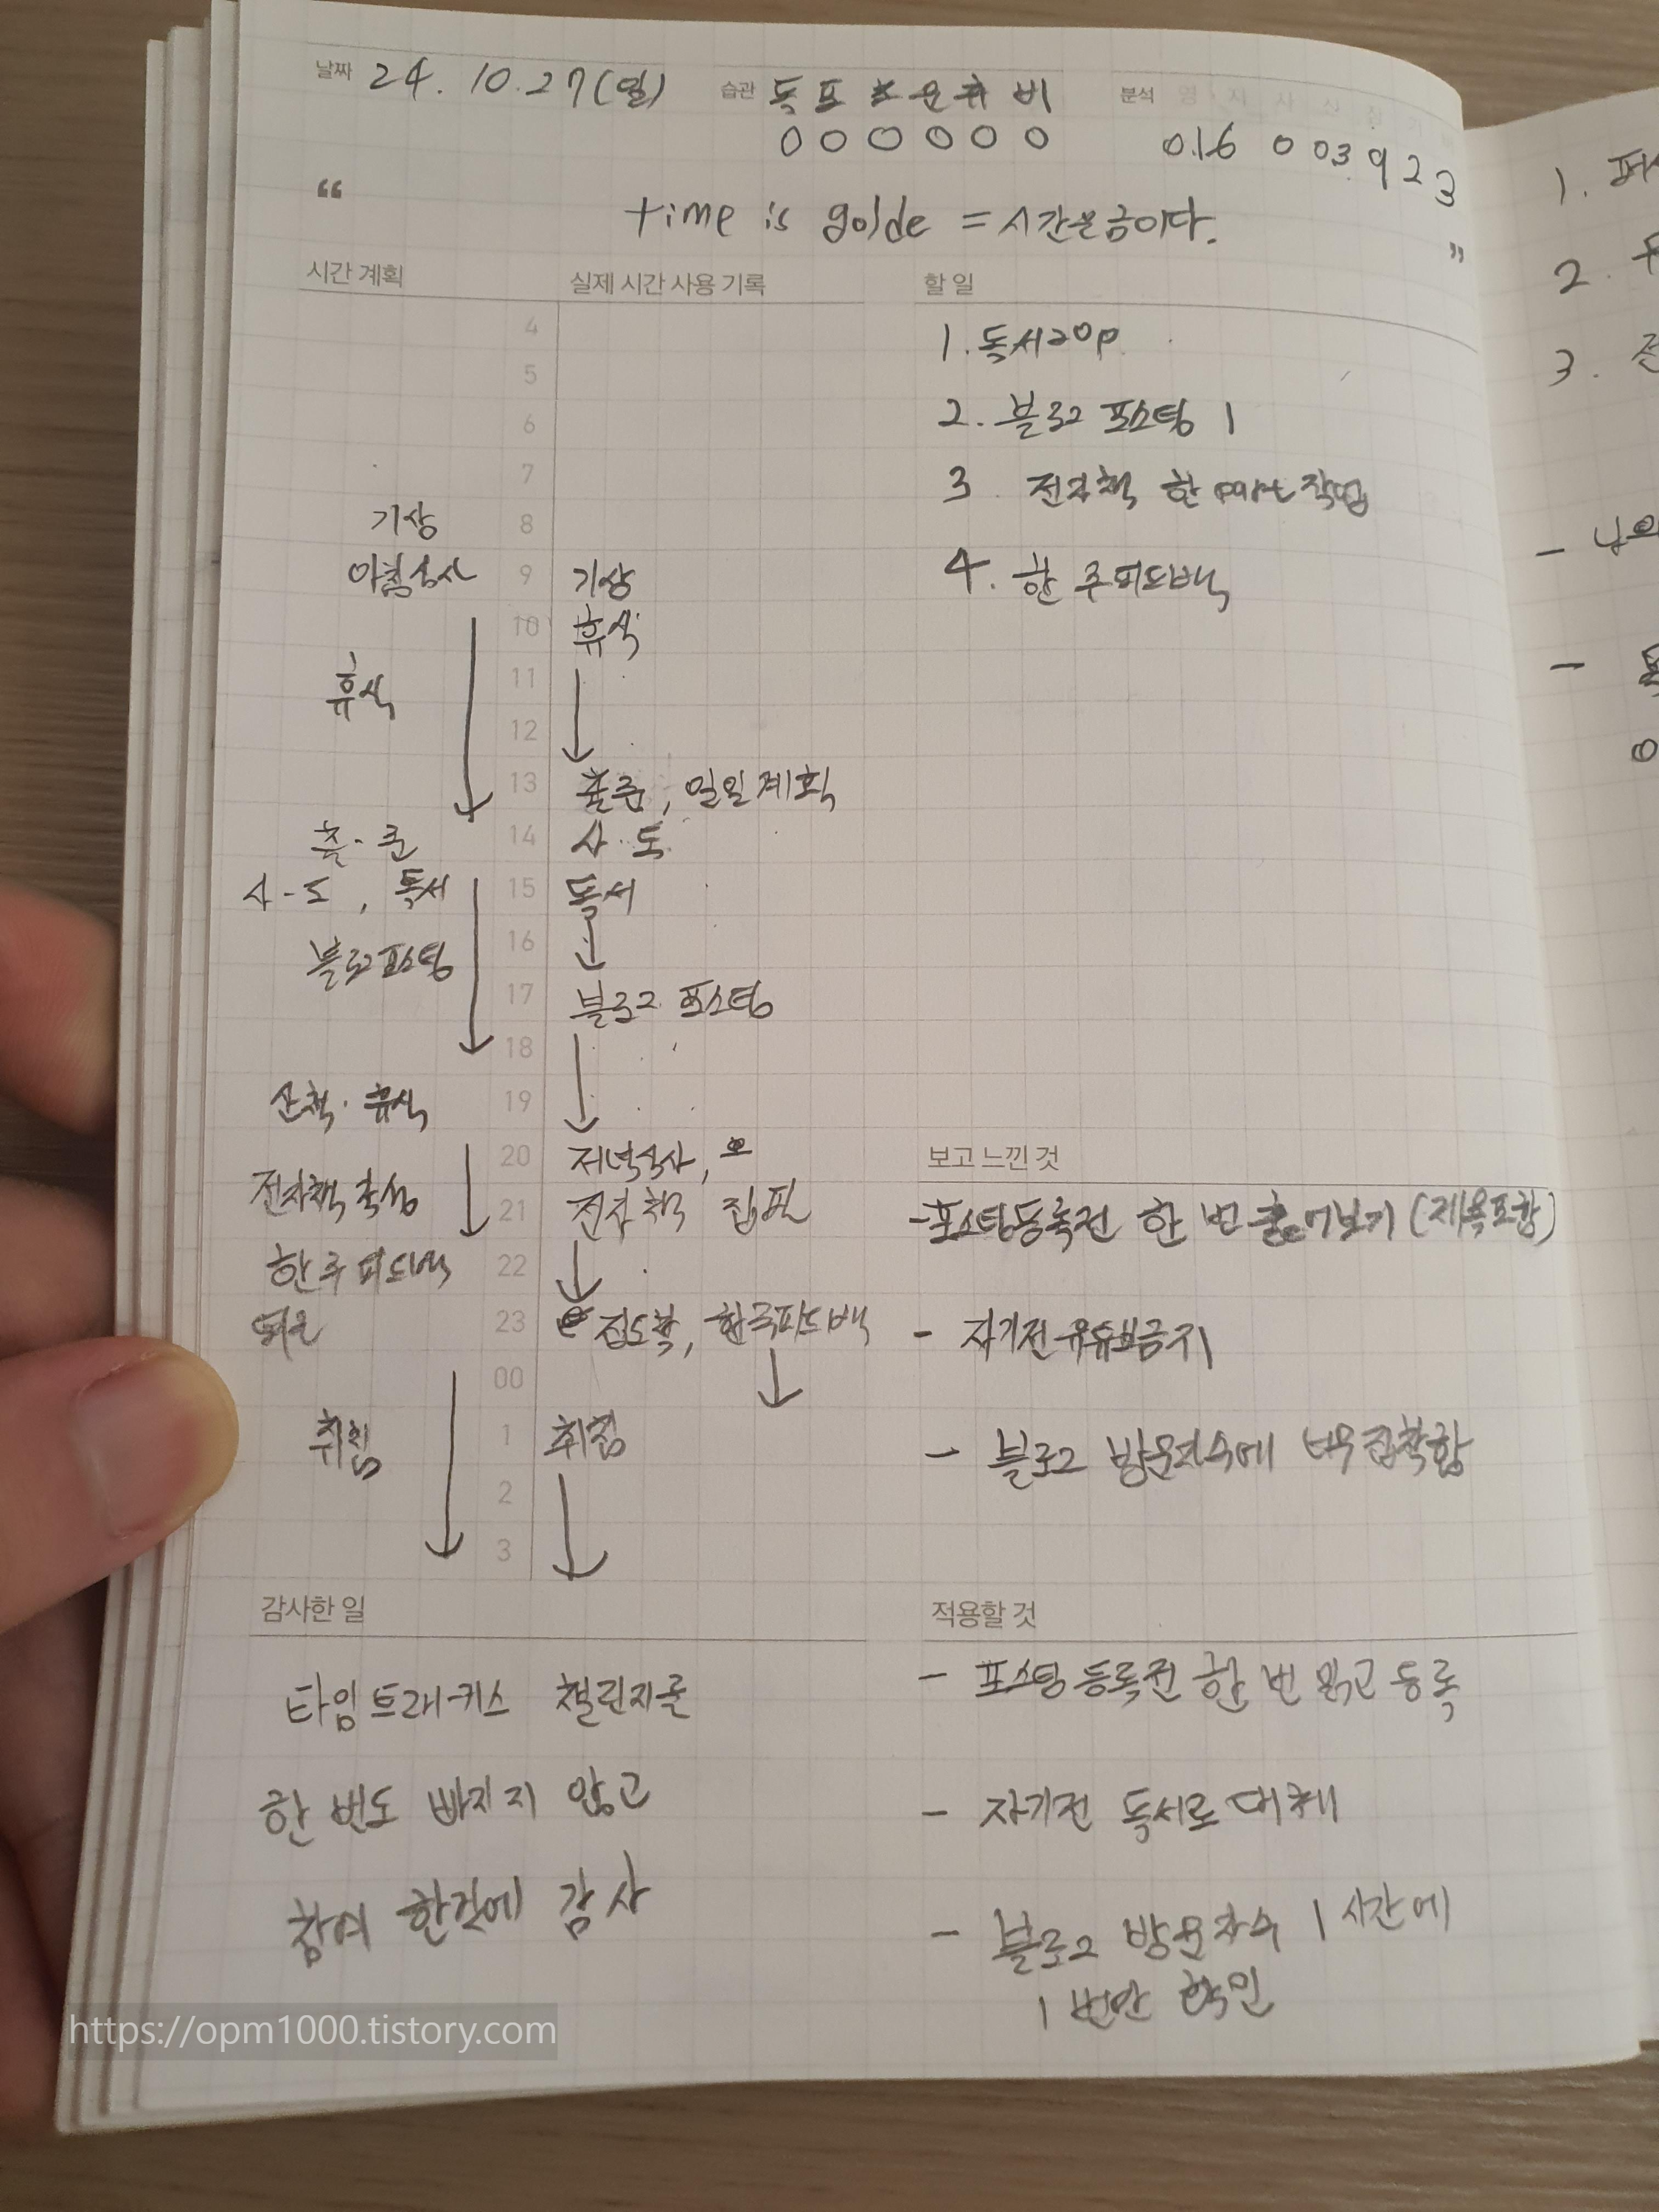 날짜 24. 10. 27(일) 습관 독 포 운 휴 비 분석 명 시 사
0 0 0 0 0 0 0.16 0 03 9 2 3
“ time is golde = 시간은금이다. ”
시간 계획 실제 시간 사용 기록 할 일
4 1. 독서20p
5
6 2. 블로그 포스팅 1
7 3 전자책 한part작업
기상 8
아침식사 9 기상 4. 한 주피드백
10 휴식
휴식 11
12
13 출준, 일일계획
출·준 14 사·도
사-도, 독서 15 독서
블로그포스팅 16
17 블로그 포스팅
18
산책·휴식 19
20 저녁식사, 보고 느낀 것
전자책 작성 21 전자책 집필 -포스팅등록전 한 번 훑어보기(제목포함)
한주피드백 22
23 집도착, 한주피드백 - 자기전 유튜브금지
00
취침 1 취침 - 블로그 방문자수에 너무집착함
2
3
감사한 일 적용할 것
타임트래커스 챌린지를 - 포스팅등록전 한 번 읽고 등록
한 번도 빠지지 않고 - 자기전 독서로 대체
참여 한것에 감사 - 블로그 방문자수 1시간에
1번만 확인
https://opm1000.tistory.com
1.
2.
3. 전